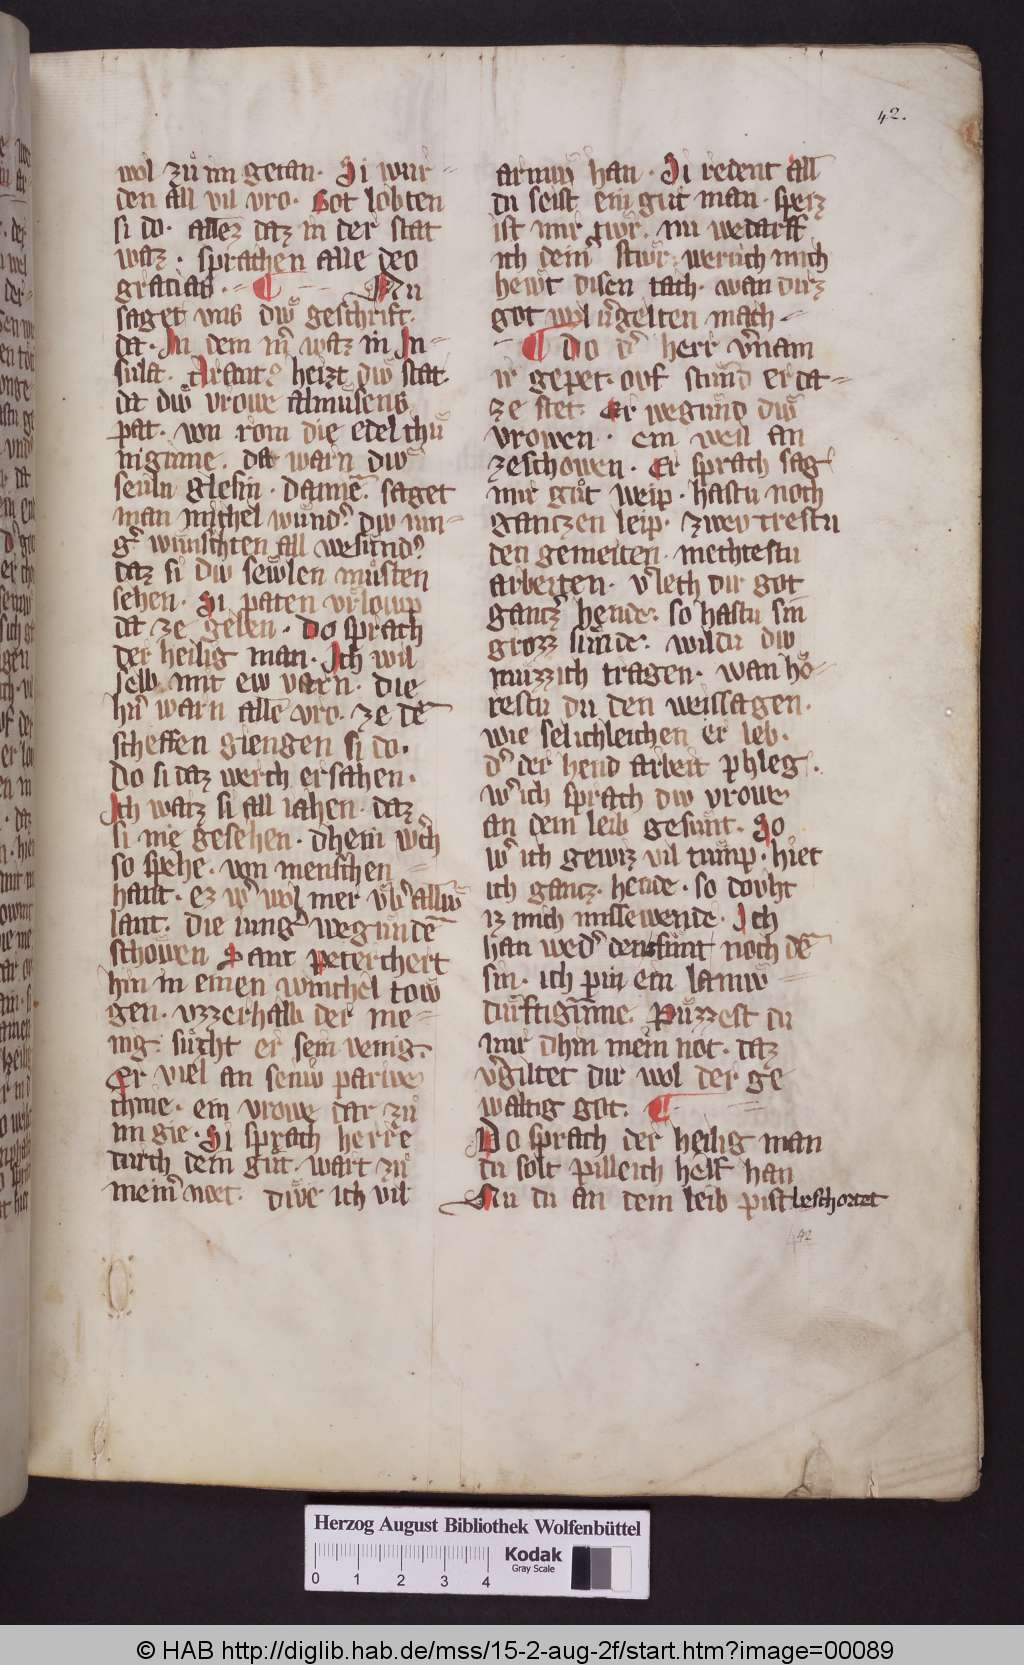 42.
wol zuͦ im getan. Si wur=
den all vil vro. Got lobten
si do. allez daz in der stat
waz. sprachen alle deo
gracias. Nu
saget vns diw geschrift.
da. In dem mer waz in In=
sula. Arantꝰ heizt diw stat.
da diw vrowe almuͦsens
pat. von rom die edel chuͤ
niginne. da warn diw
seuln glesin. Dannē saget
man michel wunder. diw iun=
ger wunschten all wesunder
daz si diw sewlen muͦsten
sehen. Si paten vrloup
da ze geben. Do sprach
der heilig man. Ich wil
selb mit ew varn. Die
hern warn alle vro. ze dē
scheffen giengen si do.
Do si daz werch ersahen.
Ich waiz si all iahen. daz
si nie gesehen. dhein werch
so spehe. von menschen
hant. ez wer wol mer vber alliw
lant. Die iunger wegundē
schowen Sant Peter chert
hin in einen winchel tow
gen. vzzerhalb der me=
nig. suͦcht er sein venig.
Er viel an seniw pariwe
chnie. ein vrowe dar zuͦ
im gie. Si sprach herre
durch dein guͦt. wart zuͦ
meiner noet. diwe ich vil
armuͦ han. Si redent all
du seist ein guͦt man. sperz
ist mir tiwr. nu wedarff
ich deiner stiwr. weruͦch mich
hewt disen tach. wan dirz
got wol vergelten mach
Do der herr vernam
ir gepet. ovf stuͦnd er da=
ze stet. Er wegund diw
vrowen. ein weil an
zeschowen. Er sprach sag
mir guͦt weip. hastu noch
gantzen leip. zwev trestu
den gemeiten. mechtestu
arbeiten. verlech dir got
gantzer hende. so hastu sin
grozz suͤnde. wildu diw
muzzich tragen. wan hoͤ=
restu du den weissagen.
wie selichleichen er leb.
der der hend arbeit phleg.
wer ich sprach diw vrowe
an dem leib gesunt. So
wer ich gewiz vil tump. hiet
ich gancz hende. so dovht
iz mich missewende. Ich
han weder den funt noch dē
sin. ich pin ein lamiw
duͤrftiginne. Puͦzzest du
mir dhin mein not. daz
vergiltet dir wol der ge
waltig got.
Do sprach der heilig man
du solt pilleich helf han
Nu du an dem leib pist beschortet
42
Herzog August Bibliothek Wolfenbüttel
0 1 2 3 4
Kodak
Gray Scale
© HAB http://diglib.hab.de/mss/15-2-aug-2f/start.htm?image=00089